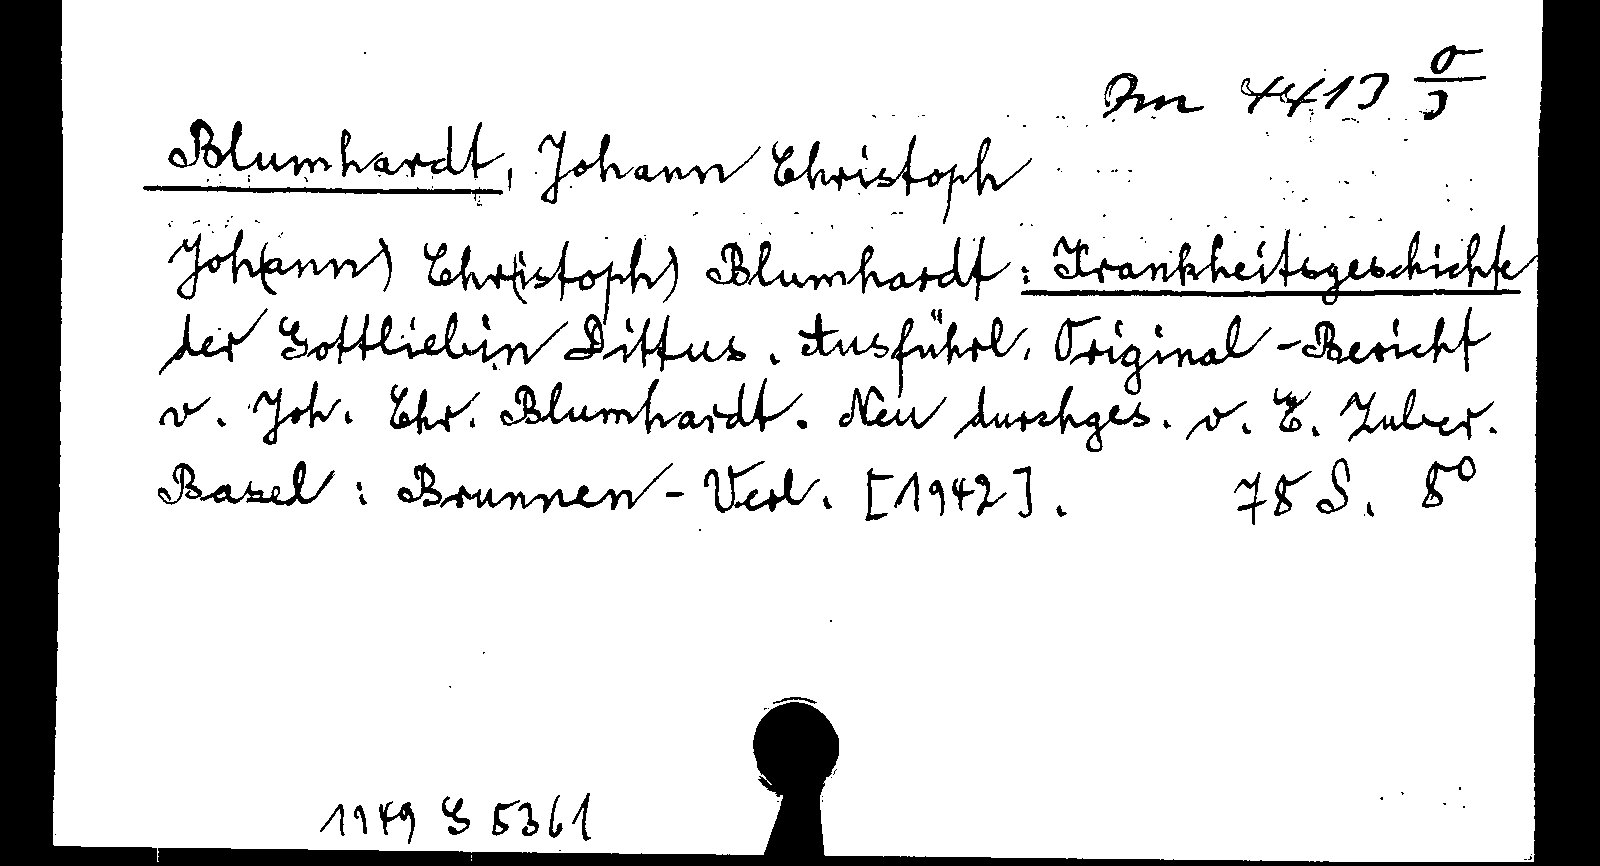 Dm 4413 σ/3
Blumhardt, Johann Christoph
Joh(ann) Chr(istoph) Blumhardt: Krankheitsgeschichte
der Gottliebin Dittus. Ausführl. Original-Bericht
v. Joh. Chr. Blumhardt. Neu durchges. v. E. Zuber.
Basel: Brunnen-Verl. [1942]. 78 S. 8°
1949 G 5361